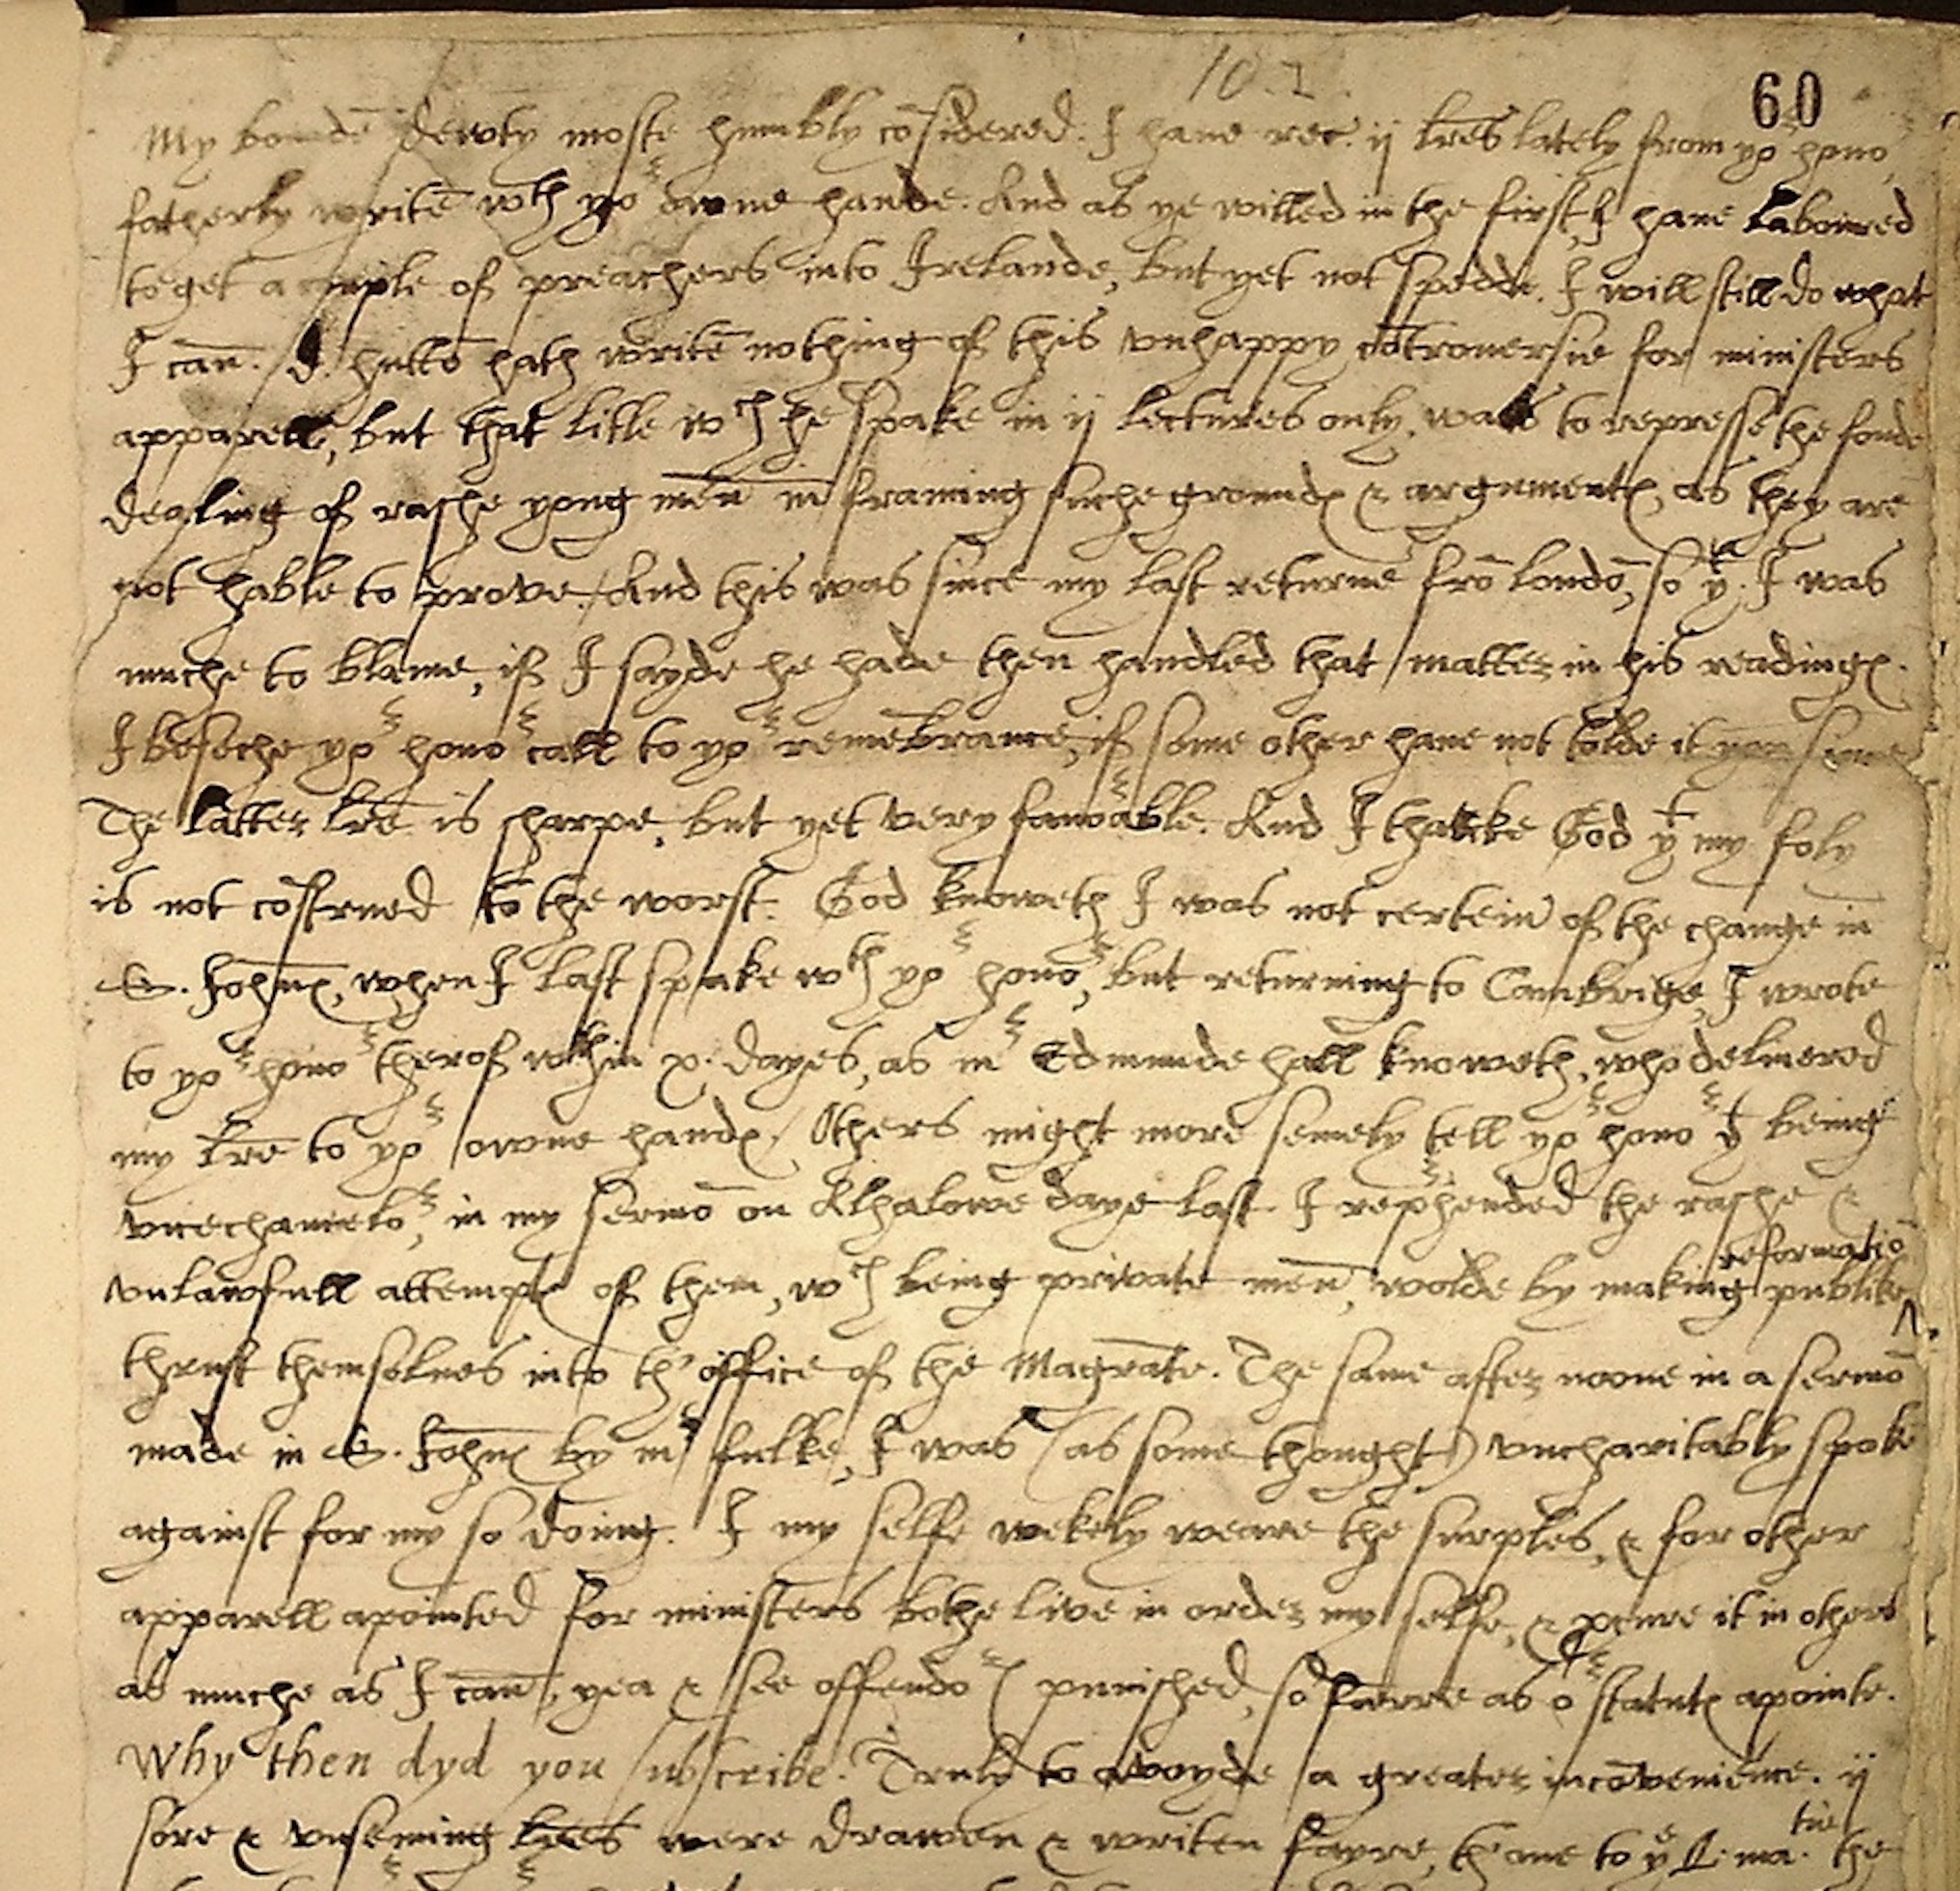 10.1.
60
My boūdē dewty moste humbly cōsidered. I haue rec. ij l̄res lately from yoʳ honoʳ,
fatherly writē wᵗʰ yoʳ owne hande. And as ye willed in the first, I haue laboured
to get a cuple of preachers into Irelande, but yet not spedde. I will still do what
I can. / D. huttō hath writē nothing of this vnhappy cōtrouersie for ministers
apparell, but that litle wᶜʰ he spake in ij lectures only, was to represse the fonde
dealing of rashe yong men in framing suche groundes & argumentes, as they are
not hable to prove. / And this was since my last returne frō londō, so yᵗ I was
muche to blame, if I sayde he hade then handled that matter in his readinges.
I beseche yoʳ honoʳ call to yoʳ remēbrance, if some other haue not tolde it you since
The latter l̄re is sharpe, but yet very fauoʳable. And I thanke God yᵗ my foly
is not cōstrued to the worst. God knoweth I was not certein of the change in
S. Johns, when I last spake wᵗʰ yoʳ honoʳ, but returning to Cambrige, I wrote
to yoʳ honoʳ therof wᵗʰin x. dayes, as mʳ Edmunde hall knoweth, who deliuered
my l̄re to yoʳ owne handes. / Others might more semely tell yoʳ honoʳ yᵗ being
vicechanceloʳ, in my sermō on Alhalowe daye last I reprehended the rashe &
vnlawfull attemptes of them, wᶜʰ being private men, wolde by making publike
reformatiō
thrust themselues into th' office of the Magrate. The same after noone in a sermō
made in S. Johns by mʳ fulke, I was (as some thought) vncharitably spoke
against for my so doing. I my selfe wekely weare the surples, & for other
apparell apointed for ministers bothe live in order my selfe, & ꝓcure it in others
as muche as I can, yea & see offendoʳs punished, so farre as oʳ statutes apointe.
Why then dyd you subscribe. Truly to avoyde a greater incōvenience. ij
sore & vnseming l̄res were drawen & writen fayre, th'one to yᵉ Q. maᵗⁱᵉ. the